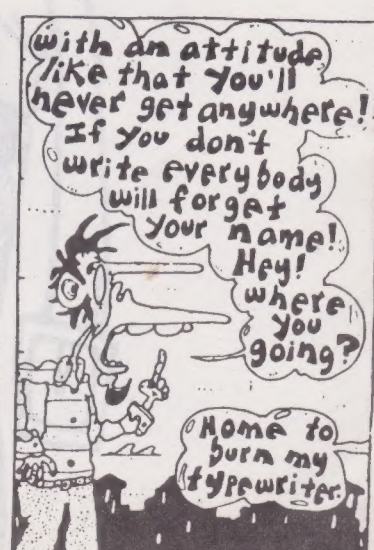 with an attitude
like that you'll
never get anywhere!
If you don't
write everybody
will forget
your name!
Hey!
where
you
going?
Home to
burn my
typewriter.